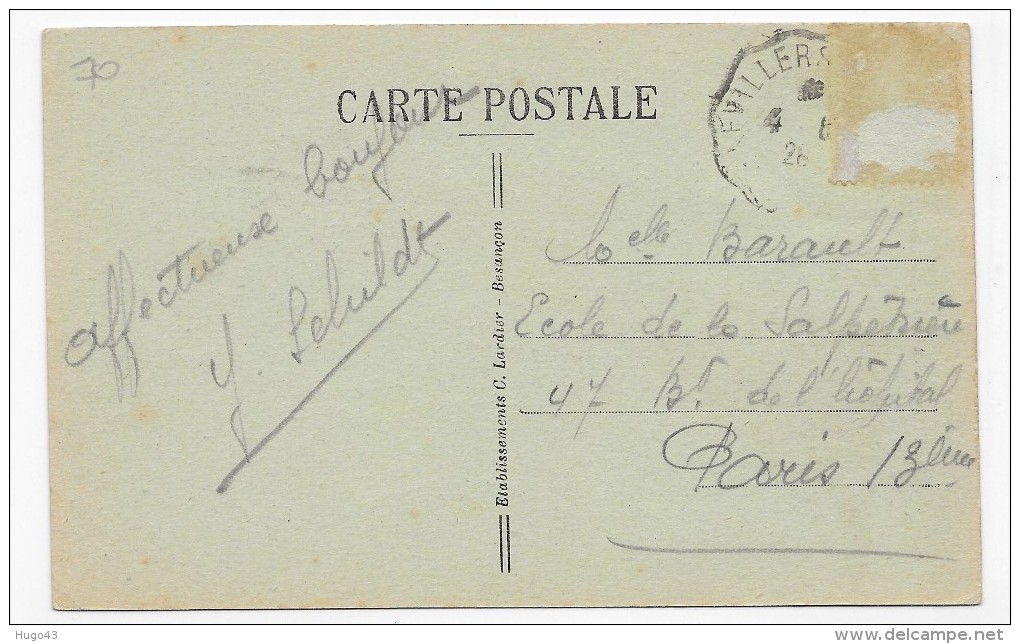 70
CARTE POSTALE
EVILLERS
4
26
Affectueux bonjour
Y. Schildt
Etablissements C. Lardier - Besançon
Melle Barault
Ecole de la Salpêtrière
47 Bd de l'hôpital
Paris 13ème
Hugo43
delcampe.net